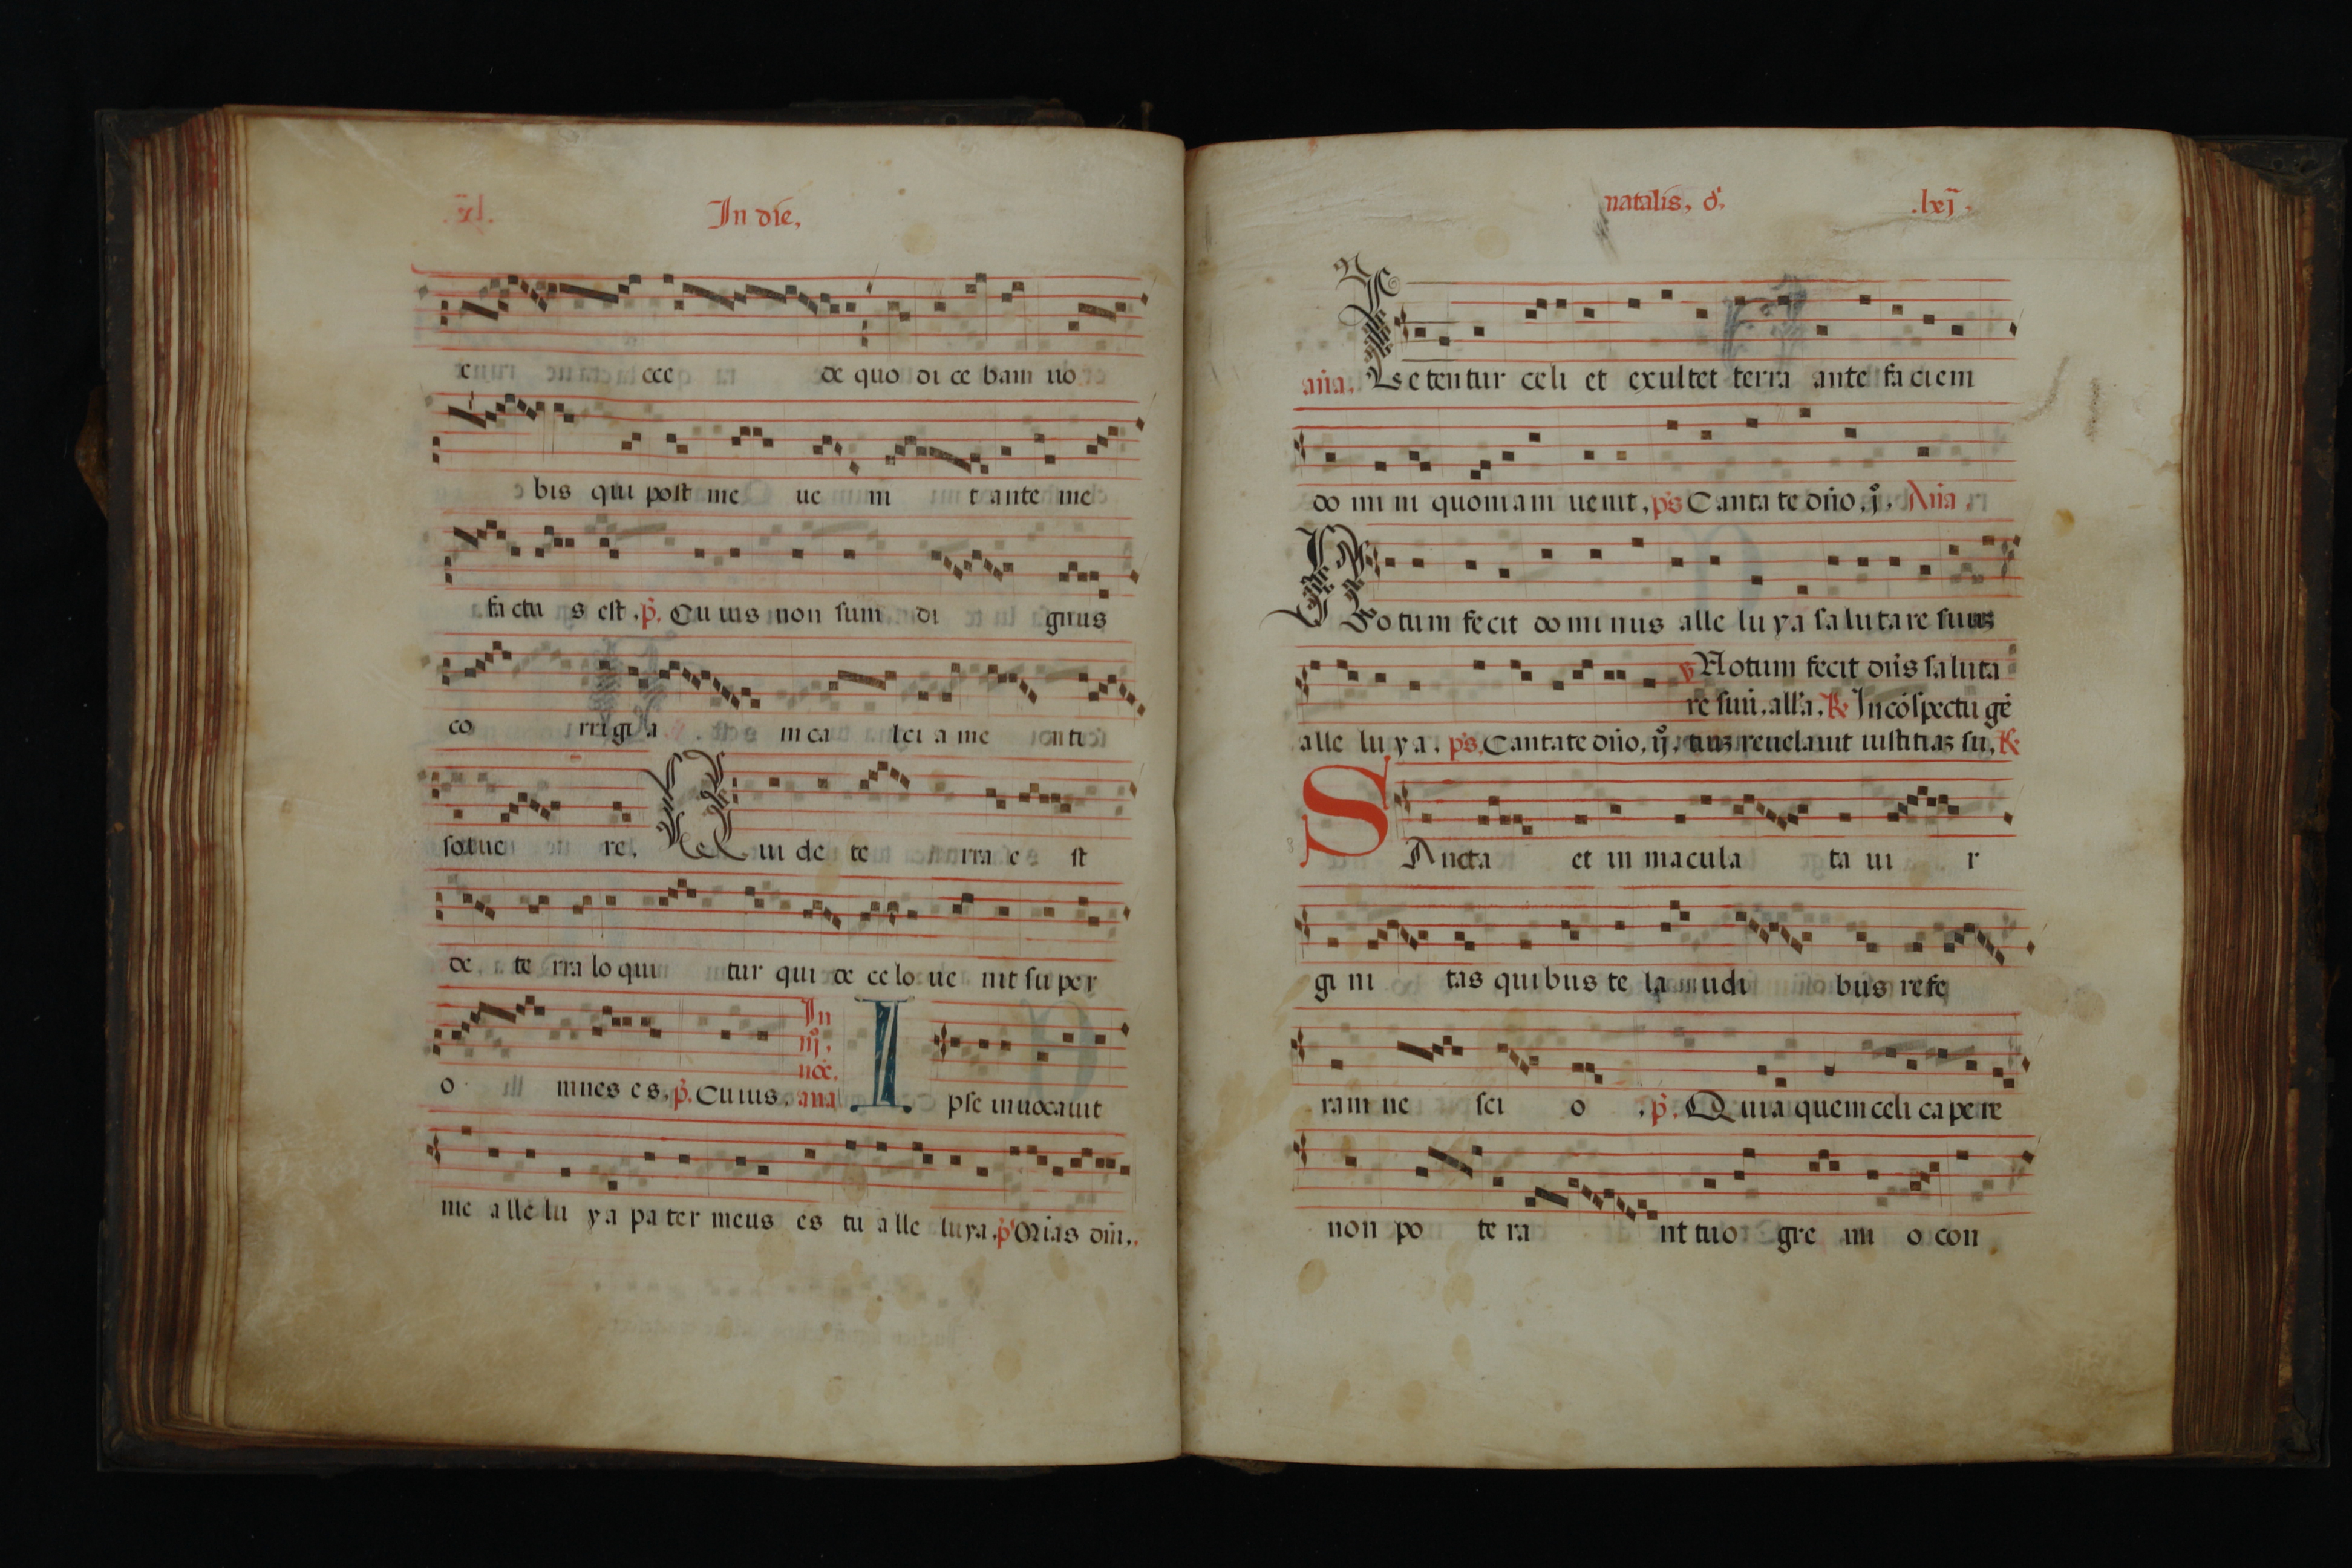 In die,
e cce de quo di ce bam uo
bis qui post me ue ni t ante me
factu s est. p̃. Cu ius non sum di gnus
co rrigi a m ca lci a me nti
solue re. Qui de te rra e st
de te rra lo qui tur qui de celo ue nit su per
In
iij.
noc.
o mnes e s. p̃. Cuius. ana I pse inuocauit
me alle lu ya pa ter meus es tu alle luya. p̃ Mias dñi.
natalis. d.
.lxj.
aña. Le tentur celi et exultet terra ante faciem
do mi ni quoniam uenit. ps Canta te dño. j. Aña
No tum fecit do mi nus alle lu ya sa lutare suuz
Notum fecit dñs saluta
re suũ. all'a. R Incõspectu gẽ
alle lu ya. ps. Cantate dño. ij. tiuz reuelauit iustitiaz su. R
S Ancta et in macula ta ui r
gi ni tas quibus te la udi bus refe
ram ne sci o . p̃. Quia quem celi cape re
non po te ra nt tuo gre mi o con